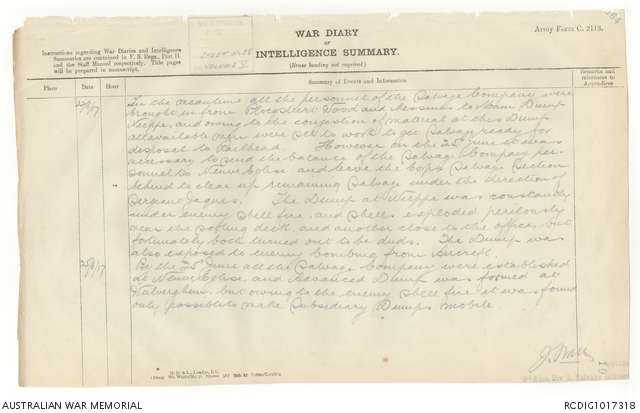 WAR DIARY
OF
INTELLIGENCE SUMMARY.
(Erase heading not required.)
Army Form C. 2118.
Instructions regarding War Diaries and Intelligence
Summaries are contained in F. S. Regs., Part II.
and the Staff Manual respectively. Title pages
will be prepared in manuscript.
Place Date Hour Summary of Events and Information Remarks and references to Appendices
In the meantime all the personnel of the Salvage Company were
brought in from Ploegsteert Wood and to Main Dump
Nieppe, and owing to the congestion of material at this Dump
all available men were set to work to get salvage ready for
disposal to Railhead. However on the 25th June it was
necessary to send the balance of the Salvage Company per-
sonnel to Neuve Eglise and leave the Corps Salvage Section
behind to clear up remaining salvage under the direction of
Sergeant Jaques. The Dump at Nieppe was constantly
under enemy shell fire, and shells exploded perilously
near the and another close to the office, but
fortunately both turned out to be duds. The Dump was
also exposed to enemy bombing from Aircraft.
25/6/17 By the 25 June all the Salvage Company were established
at Neuve Eglise and Advanced Dump was formed at
Wulverghem, but owing to the enemy shell fire it was found
only possible to make Subsidiary Dumps mobile.
AUSTRALIAN WAR MEMORIAL
RCDIG1017318